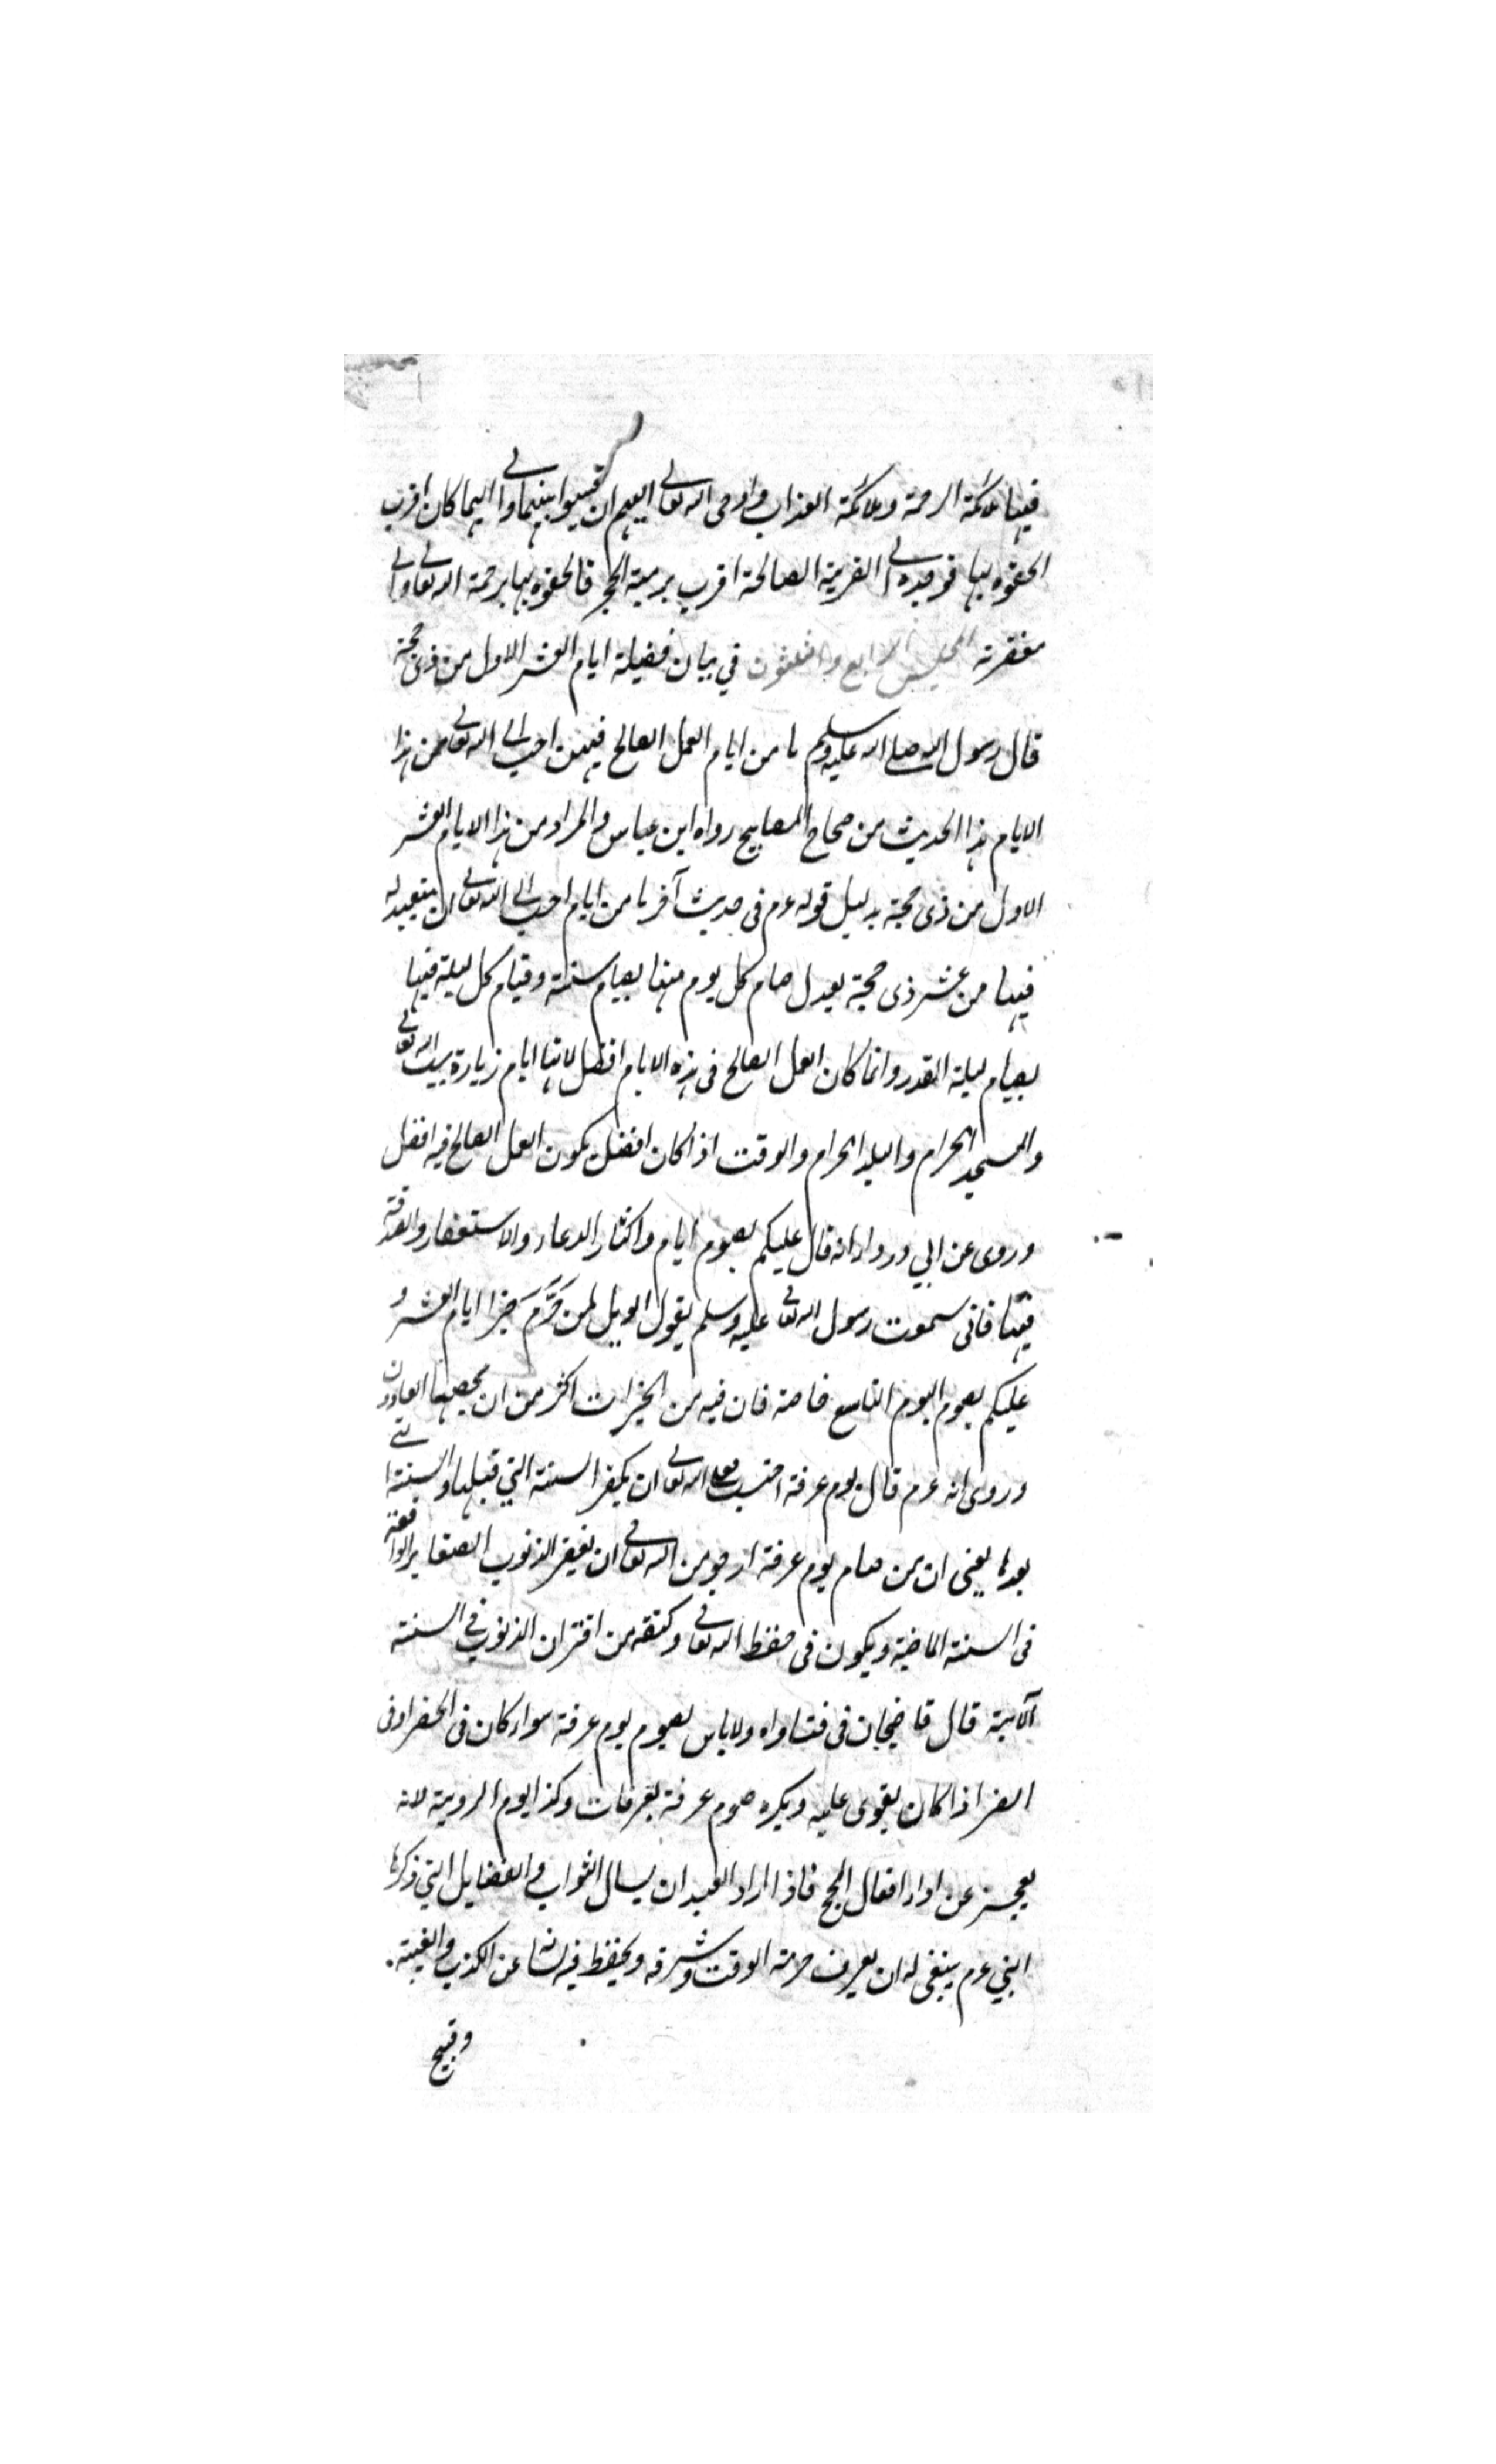 فيها ملائكة الرحمة وملائكة العذاب واوحى الله تعالى اليهم ان قيسوا بينهما والى ايهما كان اقرب
الحقوه بها فوجدوه الى القرية الصالحة اقرب برمية الحجر فالحقوه بها برحمة الله تعالى والى
مغفرته المجلس الرابع والثلثون في بيان فضيلة ايام العشر الاول من ذى حجة
قال رسول الله صلى الله عليه وسلم ما من ايام العمل الصالح فيهن احب الى الله تعالى من هذا
الايام هذا الحديث من صحاح المصابيح رواه ابن عباس والمراد من هذا الايام العشر
الاول من ذى حجة بدليل قوله عم فى حديث آخر ما من ايام احب الى الله تعالى ان يتعبد له
فيها من عشر ذى حجة يعدل صام كل يوم منها بصيام سنة وقيام كل ليلة فيها
بصيام ليلة القدر وانما كان العمل الصالح فى هذه الايام افضل لانها ايام زيارة بيت الله تعالى
والمسجد الحرام والبلد الحرام والوقت اذا كان افضل يكون العمل الصالح فيه افضل
وروى عن ابي درداء انه قال عليكم بصوم ايام واكثار الدعاء والاستغفار والصدقة
فيها فانى سمعت رسول الله تعالى عليه وسلم يقول الويل لمن حرم خير ايام العشر و
عليكم بصوم اليوم التاسع خاصة فان فيه من الخيرات اكثر من ان يحصيها العادون
وروى انه عم قال يوم عرفة احتسب على الله تعالى ان يكفر السنة التي قبلها والسنة التى
بعدها يعنى ان من صام يوم عرفة ارجو من الله تعالى ان يغفر الذنوب الصغاير الواقعة
فى السنة الماضية ويكون فى حفظ الله تعالى وكنفه من اقتران الذنوب في السنة
الآتية قال قاضيخان فى فتاواه ولا باس بصوم يوم عرفة سواء كان فى الحضر او فى
السفر اذا كان يقوى عليه ويكره صوم عرفة بعرفات وكذا يوم التروية لانه
يعجز عن اداء افعال الحج فاذا اراد العبد ان يسال الثواب والفضايل التي ذكرها
النبي عم ينبغى له ان يعرف حرمة الوقت وشرفه ويحفظ فيه لسانه عن الكذب والغيبة.
وقبيح